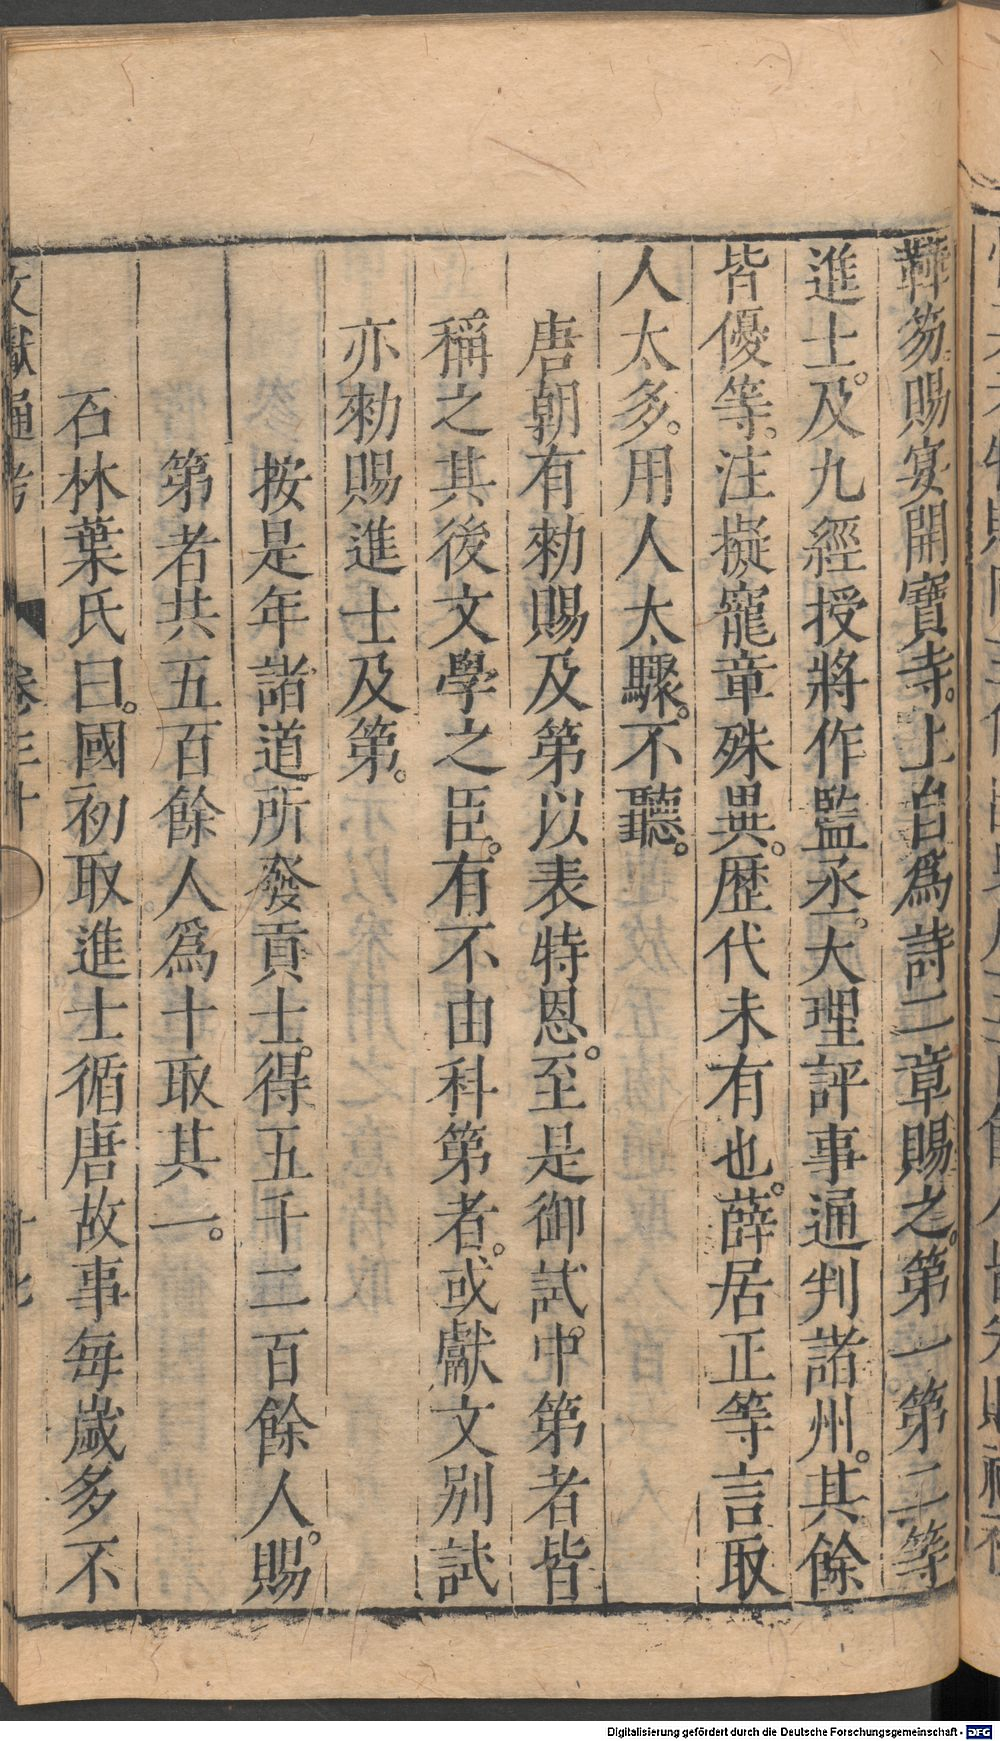 鞾笏賜宴開寶寺。上自爲詩二章賜之。第一第二等
進士。及九經授將作監丞。大理評事通判諸州。其餘
皆優等。注擬寵章殊異。歴代未有也。薛居正等言取
人太多。用人太驟。不聽。
唐朝有勑賜及第以表特恩。至是御試。中第者皆
稱之其後文學之臣。有不由科第者。或獻文別試
亦勑賜進士及第。
按是年諸道。所發貢士。得五千二百餘人。賜
第者共五百餘人爲十取其一。
石林葉氏曰。國初取進士循唐故事每歲多不
文獻通考 卷三十
Digitalisierung gefördert durch die Deutsche Forschungsgemeinschaft - DFG